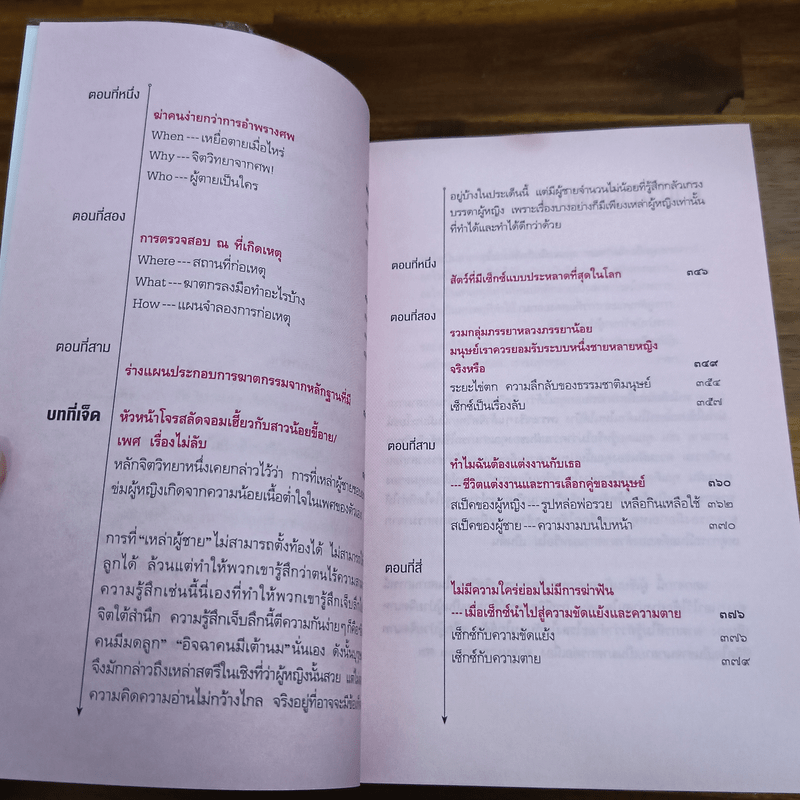 ตอนที่หนึ่ง
ฆ่าคนง่ายกว่าการอำพรางศพ
When---เหยื่อตายเมื่อไหร่
Why---จิตวิทยาจากศพ!
Who---ผู้ตายเป็นใคร
ตอนที่สอง
การตรวจสอบ ณ ที่เกิดเหตุ
Where---สถานที่ก่อเหตุ
What---ฆาตกรลงมือทำอะไรบ้าง
How---แผนจำลองการก่อเหตุ
ตอนที่สาม
ร่างแผนประกอบการฆาตกรรมจากหลักฐานที่มี
บทที่เจ็ด
หัวหน้าโจรสลัดจอมเฮี้ยวกับสาวน้อยขี้อาย/
เพศ เรื่องไม่ลับ
หลักจิตวิทยาหนึ่งเคยกล่าวไว้ว่า การที่เหล่าผู้ชาย
ข่มผู้หญิงเกิดจากความน้อยเนื้อต่ำใจในเพศของตัวเอง
การที่ “เหล่าผู้ชาย” ไม่สามารถตั้งท้องได้ ไม่สามารถ
ลูกได้ ล้วนแต่ทำให้พวกเขารู้สึกว่าตนไร้ความ
ความรู้สึกเช่นนี้นี่เองที่ทำให้พวกเขารู้สึกเจ็บลึก
จิตใต้สำนึก ความรู้สึกเจ็บลึกนี้ตีความกันง่ายๆ ก็คือ
คนมีมดลูก” “อิจฉาคนมีเต้านม” นั่นเอง ดังนั้น
จึงมักกล่าวถึงเหล่าสตรีในเชิงที่ว่าผู้หญิงนั้นสวย แต่
ความคิดความอ่านไม่กว้างไกล จริงอยู่ที่อาจจะมี
อยู่บ้างในประเด็นนี้ แต่มีผู้ชายจำนวนไม่น้อยที่รู้สึกกลัวเกรง
บรรดาผู้หญิง เพราะเรื่องบางอย่างก็มีเพียงเหล่าผู้หญิงเท่านั้น
ที่ทำได้และทำได้ดีกว่าด้วย
ตอนที่หนึ่ง
สัตว์ที่มีเซ็กซ์แบบประหลาดที่สุดในโลก ๓๔๖
ตอนที่สอง
รวมกลุ่มภรรยาหลวงภรรยาน้อย
มนุษย์เราควรยอมรับระบบหนึ่งชายหลายหญิง
จริงหรือ ๓๔๙
ระยะไข่ตก ความลึกลับของธรรมชาติมนุษย์ ๓๕๔
เซ็กซ์เป็นเรื่องลับ ๓๕๗
ตอนที่สาม
ทำไมฉันต้องแต่งงานกับเธอ
---ชีวิตแต่งงานและการเลือกคู่ของมนุษย์ ๓๖๐
สเป็คของผู้หญิง---รูปหล่อพ่อรวย เหลือกินเหลือใช้ ๓๖๒
สเป็คของผู้ชาย---ความงามบนใบหน้า ๓๗๐
ตอนที่สี่
ไม่มีความใคร่ย่อมไม่มีการฆ่าฟัน
---เมื่อเซ็กซ์นำไปสู่ความขัดแย้งและความตาย ๓๗๖
เซ็กซ์กับความขัดแย้ง ๓๗๖
เซ็กซ์กับความตาย ๓๗๙